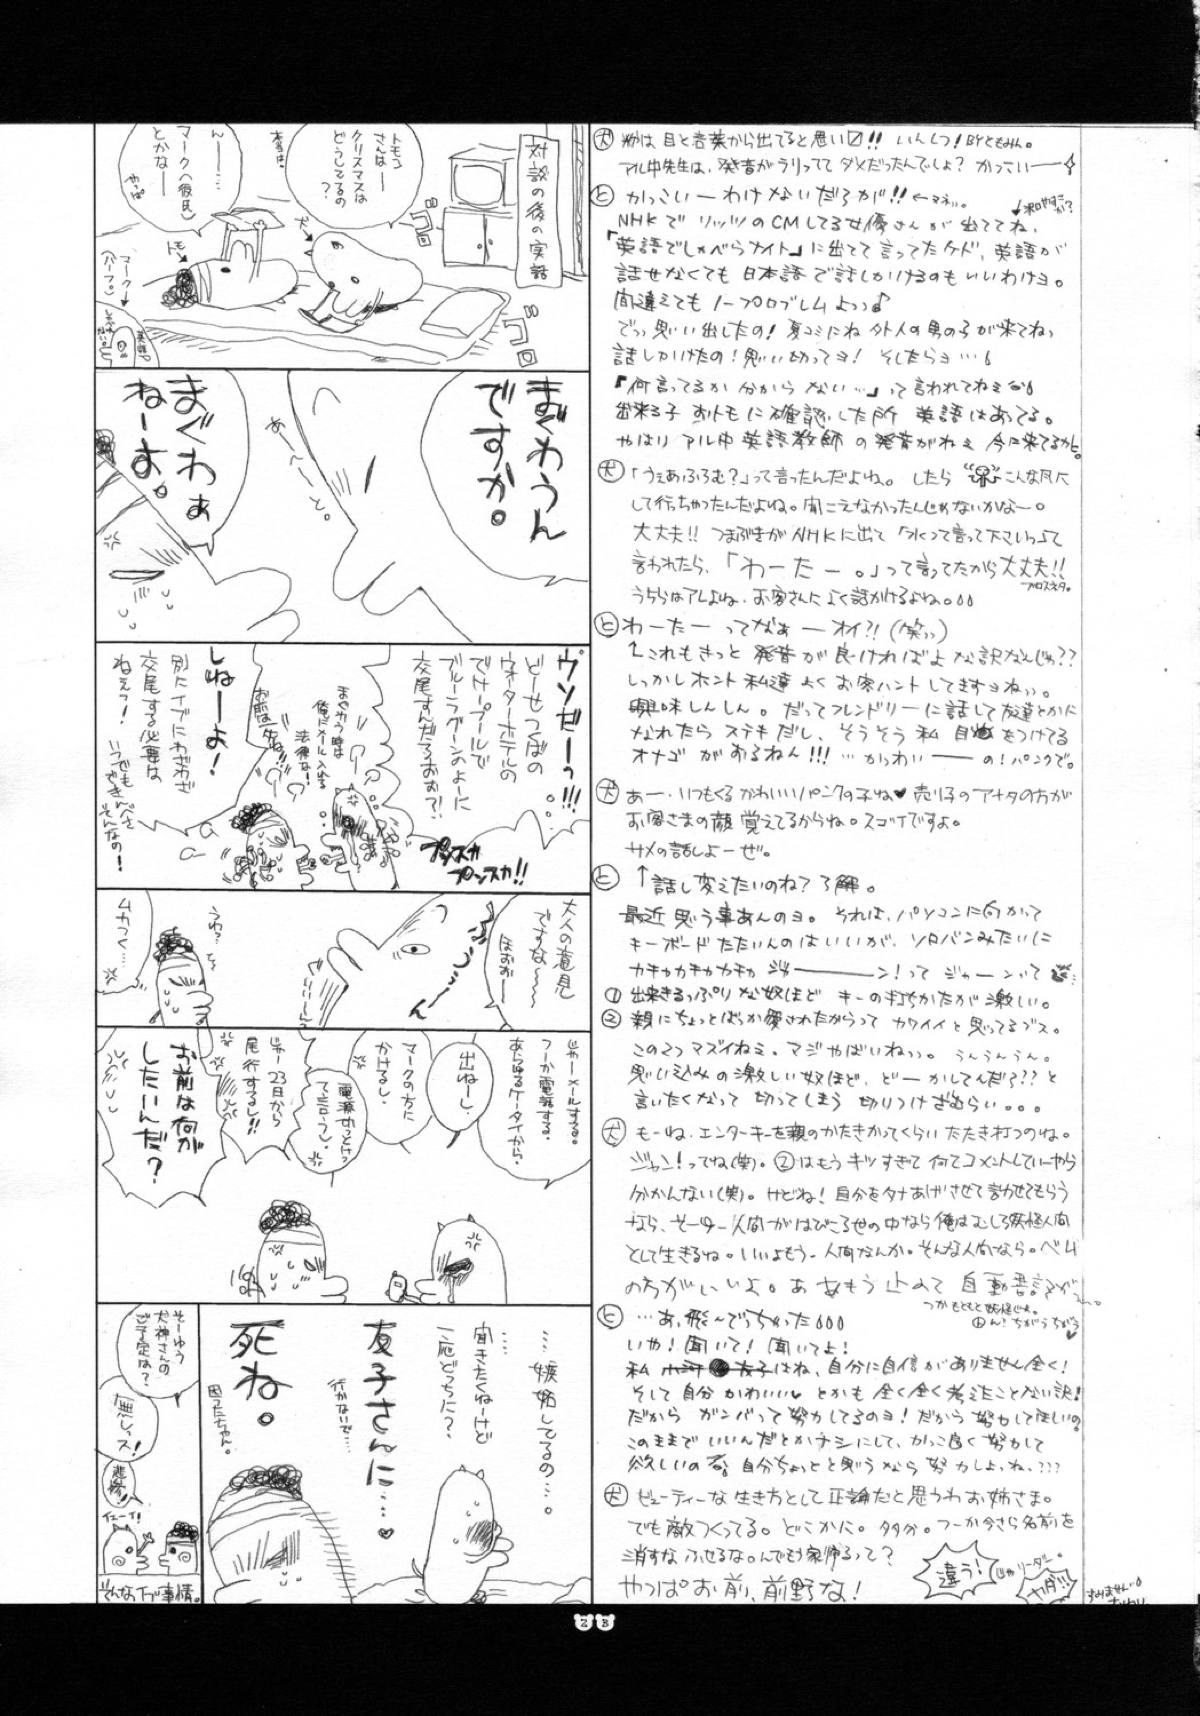 対談の後の実話
トモコ
さんは
クリスマスは
どうしてるの
?
犬→
本当は。
ん……
マーク(彼氏)
とかなー
やっぱ
トモ→
マーク→
(ハーフ)
ゴロ
ゴロ
まぐわうん
ですか。
あーべーと。
まぐわぁ
ねーよ。
ウソだーっ!!!
どーせつくばの
ウォーターホテルの
でけープールで
ブルーラグーンのよーに
交尾すんだろおお?!
プンスカ
プンスカ!!
まぐわう時は
俺にメール入れる
法律な!
お前は一生ね!!
しねーよ!
別にイブにわざわざ
交尾する必要は
ねえっ!
いつでも
できんべさ
そんなの!
大人の意見
ですな〜〜
ほおおー
ふーーん
うわっ
ムカつく…
じゃーメールする。
つーか電話する。
あらゆるケータイから。
出ねーし。
マークの方に
かけるし。
電源切っとけ
って言うし。
じゃー23日から
尾行するし!!
お前は何が
したいんだ?
……嫉妬してるの…。
……
聞きたくねーけど
一応どっちに?
友子さんに……♥
行かないで……
死ね。
困ったちゃん。
そーゆう
犬神さんの
ご予定は?
無しィス!
悲惨!
イエーイ!
そんなイブ事情。
犬 粉は目と音葉から出てると思い〼!! いんしつ! BYともみん。
アル中先生は、発音がラリってて ダメだったんでしょ? かっこいー
と かっこいーわけないだろが!!
NHKで リッツのCMしてる女優さんが 出ててね、
「英語でしゃべらナイト」に出てて言ってたケド、英語が
話せなくても 日本語で話しかけるのもいいわけヨ。
間違えても ノープロブレムよっっ♪
でっっ思い出したの! 夏コミにね 外人の男の子が来てねっ
話しかけたの! 思い切ってヨ! そしたらヨ…
『何言ってるか 分からない…』って言われてねぇ
出来る子 おトモに確認した所 英語はあてる。
やはり アル中 英語教師 の発音がねぇ 今に来てるかと。
犬 「うぇあふろむ?」って言ったんだよね。したら こんな風に
して行っちゃったんだよね。聞こえなかったんじゃないかなー。
大丈夫!! つまぶきがNHKに出て「水」って言って下さいっって
言われたら、「わーたー。」って言ってたから大丈夫!!
ブロスネタ。
うちらはアレよね、お客さんによく話かけるよね。
と わーたー ってなぁー オイ?! (笑っ)
↑これもきっと 発音が良ければよな訳なんじゃ??
しっかしホント 私達 よく お客ハント してますヨねっ。
興味しんしん。だってフレンドリーに話して友達とかに
なれたら ステキだし、そうそう 私 目をつけてる
オナゴ がおるねん!!! …かっわいーーの! パンクで。
犬 あー、いつもくるかわいいパンクの子ね♥ 売り子のアナタの方が
お客さまの顔 覚えてるからね。スゴイですよ。
サメの話しよーぜ。
と ↑話し変えたいのね? 了解。
最近 思う事あんのヨ。それは、パソコンに向かって
キーボードたたいんのはいいが、ソロバンみたいに
カチャカチャカチャ ジャーーーン! って ジャーンって
① 出来きるっぷりな奴ほど キーの打ちかたが激しい。
② 親にちょっとばっか愛されたからって カワイイと思ってるブス。
この2つ マズイねぇ。マジやばいねっっ。うんうんうん。
思い込みの激しい奴ほど、どーかしてんだろ?? と
言いたくなって 切ってしまう 切りつけざむらい。。。
犬 もーね、エンターキーを親のかたきかってくらい たたき打つのね。
ジャン! ってね(笑)。②はもうキツすぎて何てコメントしていーやら
分かんない(笑)。けどね! 自分をタナあげさせて言わせてもらう
なら、そーゆー人間がはびこる世の中なら俺はむしろ妖怪人間
として生きるね。いいよもう、人間なんか。そんな人間なら。ベム
の方がいいよ。あ、あもう止めて 自動書記が
つかもともと妖怪じゃ。
ん! ちがうちがう
と …あ、飛〜でっちゃった
いや! 聞いて! 聞いてよ!
私 友子はね、自分に自信がありません全く!
そして 自分 かわいい♥ とかも 全く全く考えたことない訳!
だから ガンバって努力してるのヨ! だから 努力してほしいの。
このままで いいんだとかナシにして、かっこ良く 努力して
欲しいのね 自分ちょっとと思うなら 努力しよ。ね、???
犬 ビューティーな生き方として正論だと思うわお姉さま。
でも敵つくってる。どこかに。多分。つーか今さら名前を
消すな ふせるな。んでもう家帰るって?
やっぱお前、前野な!
違う!
じゃ リーダー。
ヤダ!!
すみません。
おわり。
23